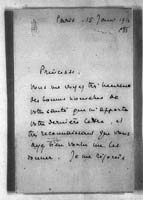 Paris. 15 Janv. 191
Princesse,
Vous me voyez très heureux
des bonnes nouvelles de
votre santé que m'apporte
votre dernière lettre, et
très reconnaissant que vous
ayez bien voulu me les
donner. Je me réjouis